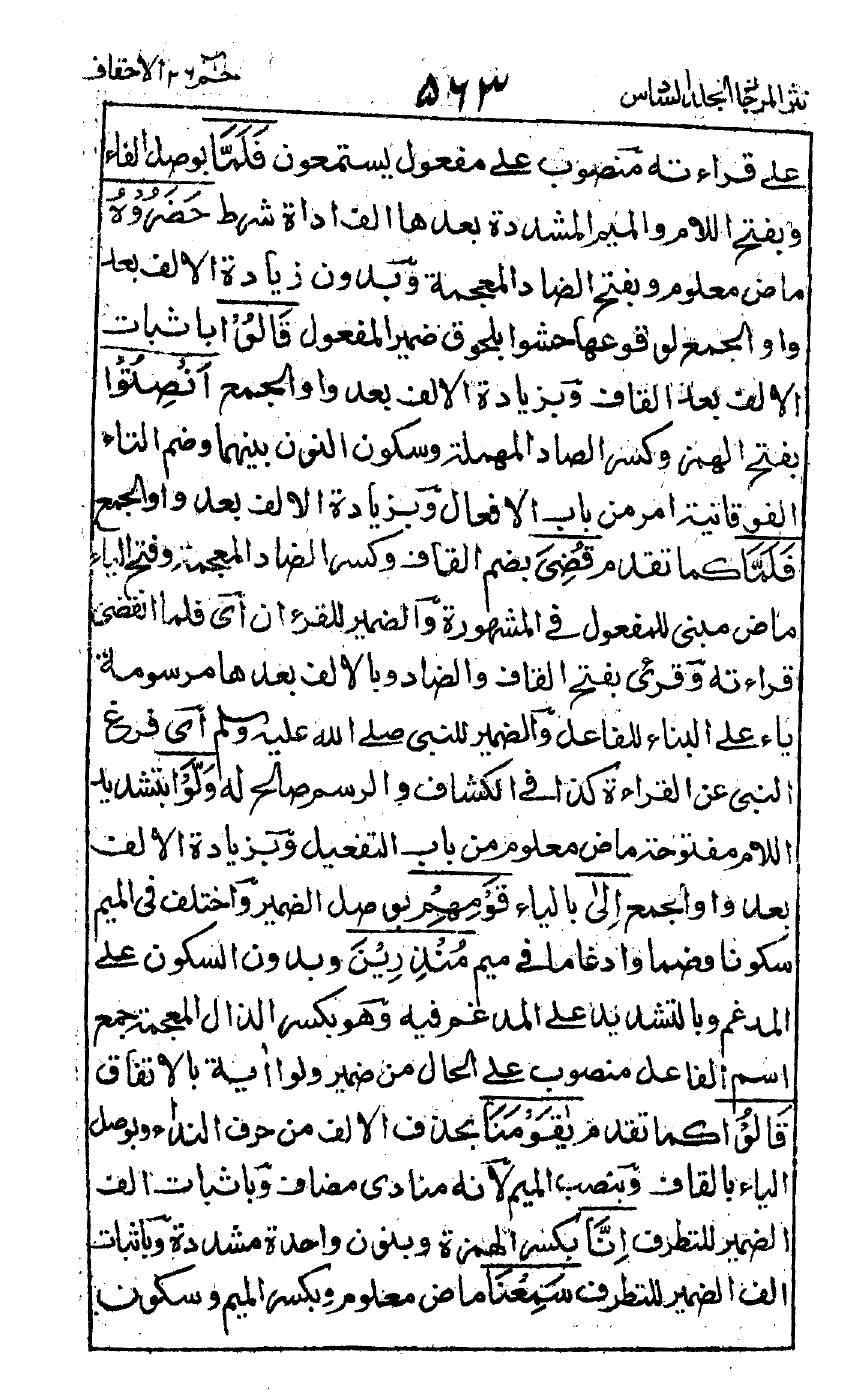 نثر المرجان المجلد السادس ۵۶۳ حٰم ۲۶ الاحقاف
على قراءته منصوب على مفعول يستمعون فَلَمَّا بوصل الفاء
وبفتح اللام والميم المشددة بعدها الف اداة شرط حَضَرُوْهُ
ماض معلوم وبفتح الضاد المعجمة وبدون زيادة الالف بعد
واو الجمع لوقوعها حشوا بلحوق ضمير المفعول قَالُوْا باثبات
الالف بعد القاف وبزيادة الالف بعد واو الجمع اَنْصِتُوْا
بفتح الهمز وكسر الصاد المهملة وسكون النون بينهما وضم التاء
الفوقانية امر من باب الافعال وبزيادة الالف بعد واو الجمع
فَلَمَّا كما تقدم قُضِىَ بضم القاف وكسر الضاد المعجمة وفتح الياء
ماض مبنى للمفعول فى المشهورة والضمير للقرءان اى فلما انقضى
قراءته وقرئ بفتح القاف والضاد وبالالف بعدها مرسومة
ياء على البناء للفاعل والضمير للنبى صلى الله عليه وسلم اى فرغ
النبى عن القراءة كذا فى الكشاف والرسم صالح له وَلَّوْا بتشديد
اللام مفتوحة ماض معلوم من باب التفعيل وبزيادة الالف
بعد واو الجمع اِلىٰ بالياء قَوْمِهِمْ بوصل الضمير واختلف فى الميم
سكونا وضما وادغاما فى ميم مُنْذِرِيْنَ وبدون السكون على
المدغم وبالتشديد على المدغم فيه وهو بكسر الذال المعجمة جمع
اسم الفاعل منصوب على الحال من ضمير ولوا اٰية بالاتفاق
قَالُوْا كما تقدم يٰقَوْمَنَا بحذف الالف من حرف النداء وبوصل
الياء بالقاف وبنصب الميم لانه منادى مضاف وباثبات الف
الضمير للتطرف اِنَّا بكسر الهمزة وبنون واحدة مشددة وباثبات
الف الضمير للتطرف سَمِعْنَا ماض معلوم وبكسر الميم وسكون